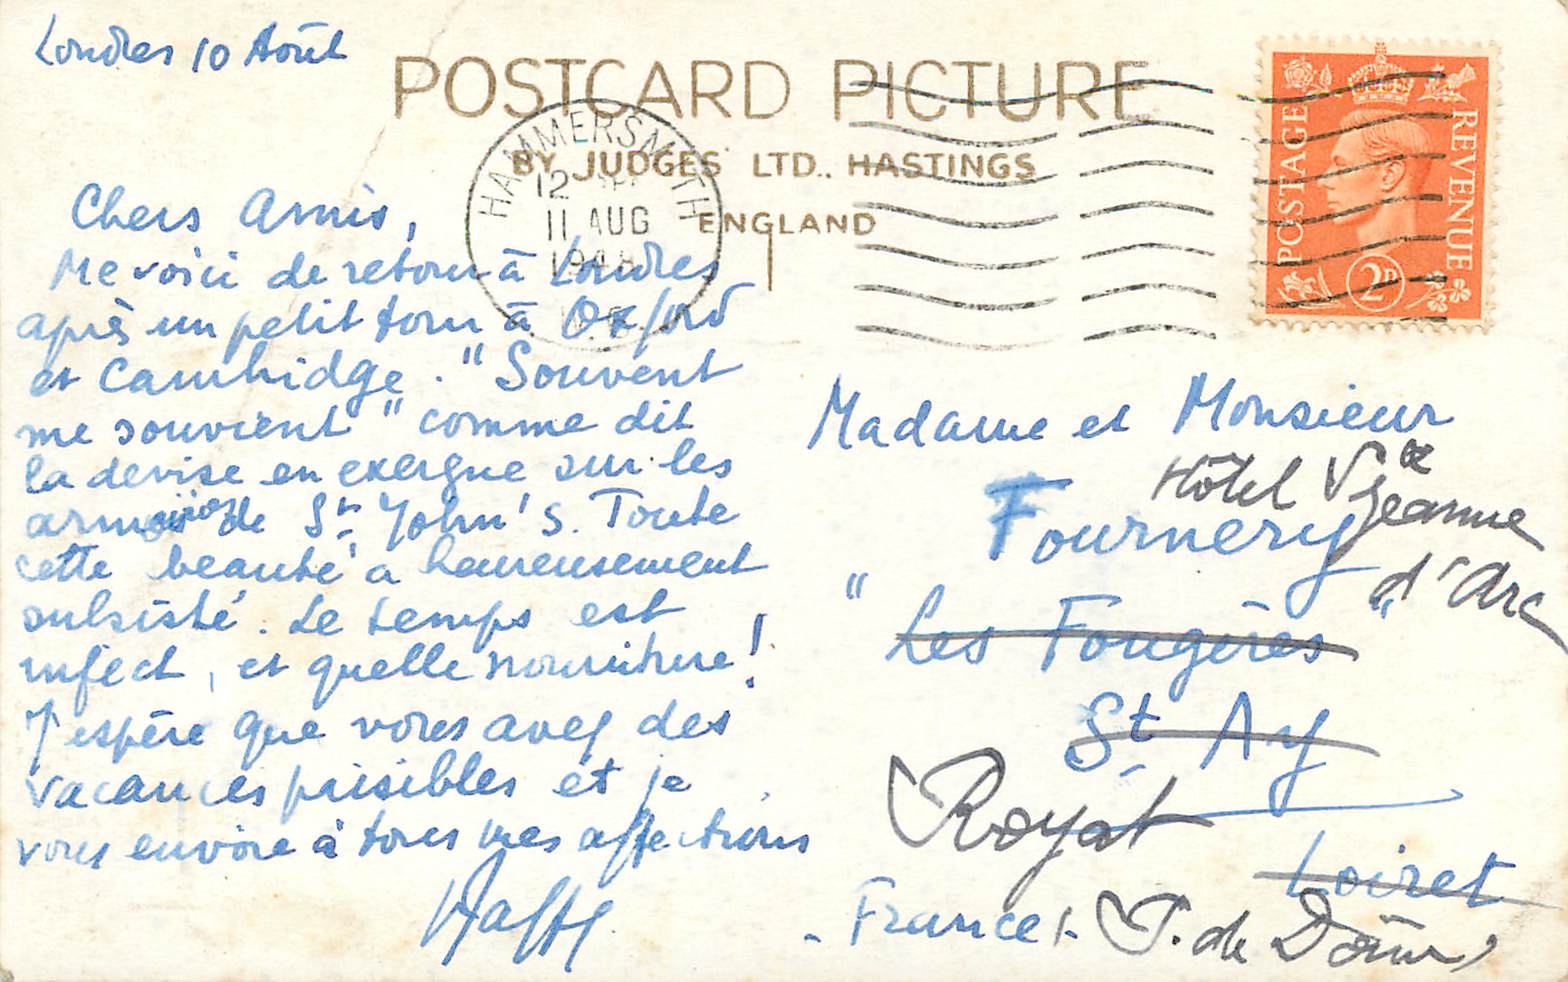 Londres 10 Août
POSTCARD PICTURE
BY JUDGES LTD., HASTINGS
ENGLAND
HAMMERSMITH
12
11 AUG
POSTAGE
REVENUE
2D
Chers Amis,
Me voici de retour à Londres
après un petit tour à Oxford
et Cambridge. "Souvent
me souvient" comme dit
la devise en exergue sur les
armoiries de St John's. Toute
cette beauté a heureusement
subsisté. Le temps est
infect, et quelle nourriture!
J'espère que vous avez des
vacances paisibles et je
vous envoie à tous mes affections
Madame et Monsieur
Fournery
Hôtel Ste Jeanne
d'Arc
"Les Fougères"
St Ay
Royat
Loiret
- France - P. de Dôme